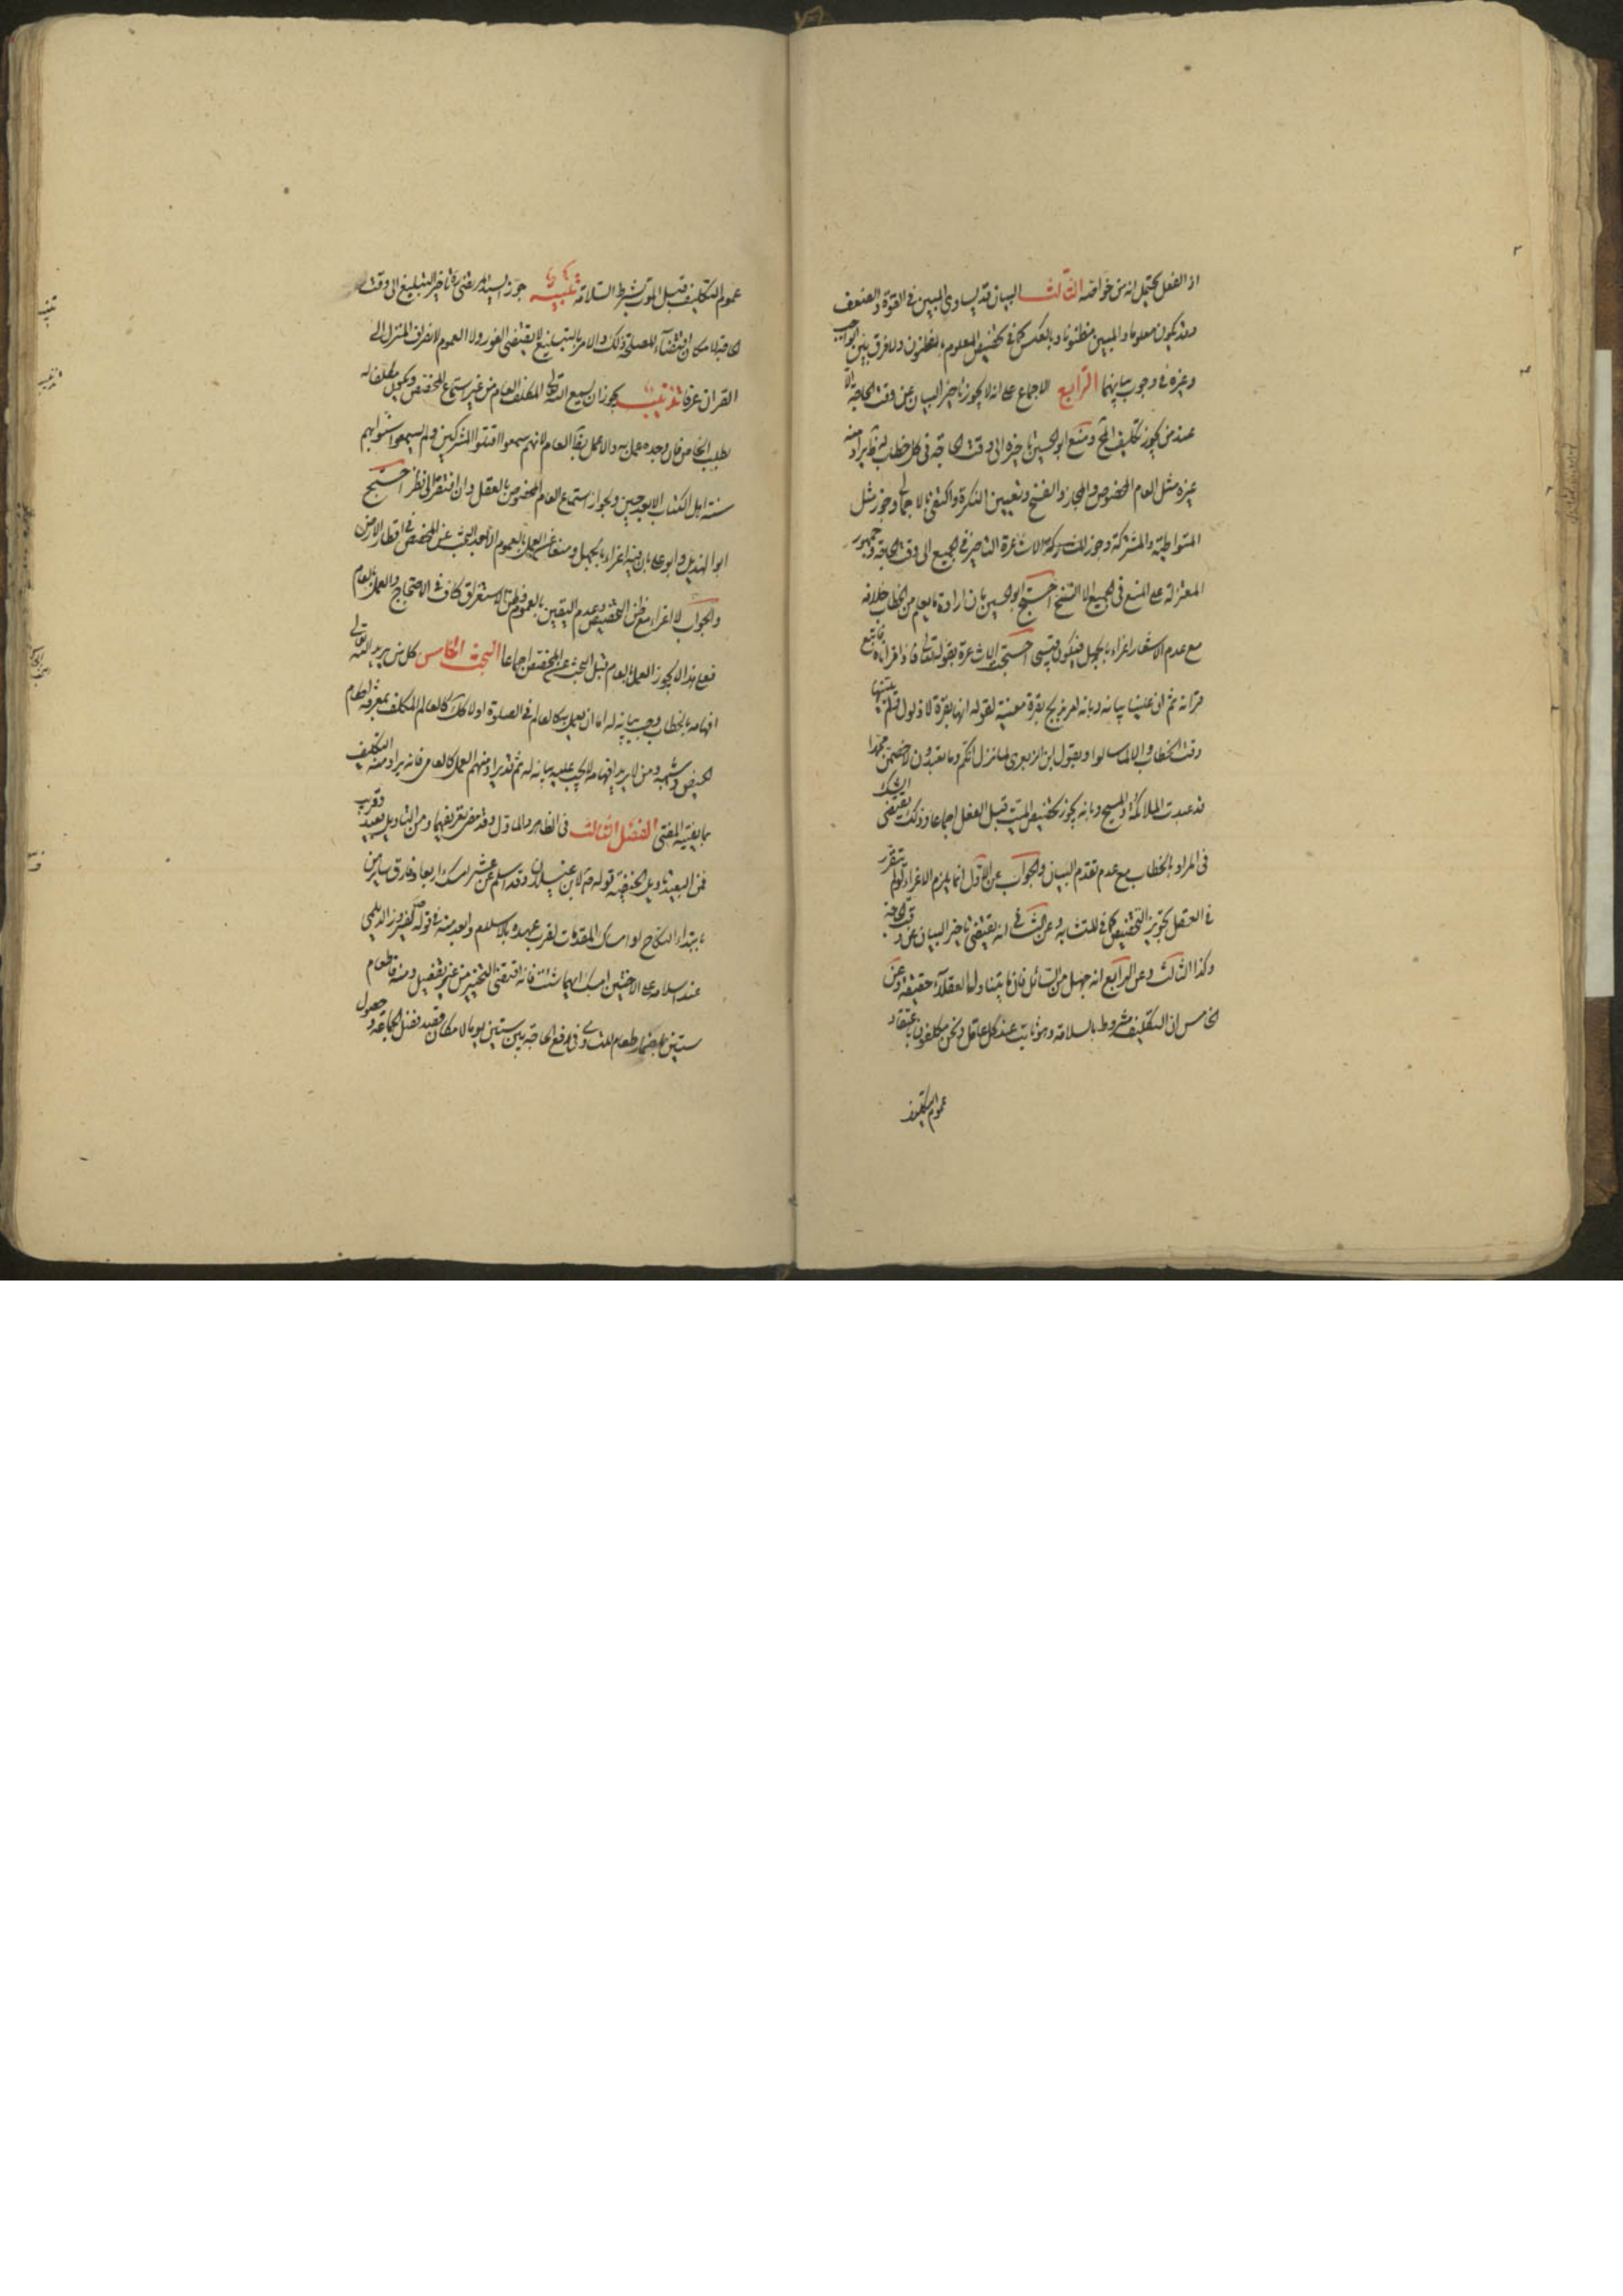 اذ الفعل يحتمل انه من خواصه الثالث البيان قد يساوي المبين في القوة والضعف
وقد يكون معلوما والمبين مظنونا وبالعكس كما في تخصيص المعلوم بالمظنون ولا فرق بين الواجب
وغيره في وجوب بيانهما الرابع الاجماع على انه لا يجوز تاخير البيان عن وقت الحاجة الا
عند من يجوز تكليف المح ومنع ابو الحسين تاخيره الى وقت الحاجة في كل خطاب له ظاهر اريد منه
غيره مثل العام المخصوص والمجاز والنسخ وتعيين النكرة واكتفى بالاجمالي وجوز مثل
المتواطية والمشتركة وجوز الاشاعرة التاخير في الجميع الى وقت الحاجة وجمهور
المعتزلة على المنع في الجميع الا النسخ احتج ابو الحسين بان ارادة ما يعلم من الخطاب خلافه
مع عدم الاشعار اغراء بالجهل فيكون قبيحا احتجت الاشاعرة بقوله تعالى فاذا قراناه فاتبع
قرانه ثم ان علينا بيانه وبانه امر بذبح بقرة معينة لقوله انها بقرة لا ذلول ولم يبينها
وقت الخطاب والا لما سالوا وبقول ابن الزبعرى لما نزل انكم وما تعبدون لاخصمن محمدا
قد عبدت الملائكة والمسيح وبانه يجوز تخصيص الميت قبل الفعل اجماعا وذلك يقتضى الشك
في المراد بالخطاب مع عدم تقدم البيان والجواب عن الاول انما يلزم الاغراء لو لم يتقرر
في العقل تجويز التخصيص كما في المتشابه وعن الثاني انه يقتضي تاخير البيان عن وقت الحاجة
وكذا الثالث وعن الرابع انه جهل من السائل فان ما يتناول ما لا يعقل حقيقة وعن
الخامس ان التكليف مشروط بالسلامة وهو ثابت عند كل عاقل ونحن مكلفون باعتقاد
عموم التكليف
عموم التكليف قبل الموت بشرط السلامة تنبيه جوز السيد المرتضى تاخير التبليغ الى وقت
الحاجة لامكان اقتضاء المصلحة ذلك والامر بالتبليغ لا يقتضى الفور ولا العموم لانصراف المنزل الى
القران عرفا تذنيب يجوز ان يسمع الله تعالى المكلف العام من غير استماع المخصص ويكون مكلفا له
بطلب الخاص فان وجده عمل به والا عمل بالعام لانهم سمعوا اقتلوا المشركين ولم يسمعوا سنوا بهم
سنة اهل الكتاب الا بعد حين ولجواز استماع العام المخصوص بالعقل وان افتقر الى نظر احتج
ابو الهذيل وابو علي بان فيه اغراء بالجهل ومنعا عن العمل بالعموم الا بعد البحث عن المخصص في اقطار الارض
والجواب لا اغراء مع ظن التخصيص وعدم اليقين بالعموم وظن الاستغراق كاف في الاحتجاج والعمل بالعام
فعلى هذا لا يجوز العمل بالعام قبل البحث عن المخصص اجماعا البحث الخامس كل من يريد الله تعالى
افهامه بالخطاب وجب بيانه له اما ان يعمل به كالعام في الصلوة او لا كذلك كالعالم المكلف بمعرفة احكام
الحيض وشبهه ومن لا يريد افهامه لا يجب عليه بيانه له ثم قد يراد منهم العمل كالعامي فانه يراد منه التكليف
بما يفتيه المفتى الفصل الثالث في الظاهر والماول وقد مضى تعريفهما ومن التاويل بعيد وقريب
فمن البعيد تاويل الحنفية قوله لابن غيلان وقد اسلم عن عشر امسك اربعا وفارق سايرهن
بابتداء النكاح او امساك المتقدمات لقرب عهده بالاسلام وابعد منه في قوله لفيروز الديلمي
عند اسلامه على الاختين امسك ايهما شئت فانه اقتضى التخيير من غير تفصيل ومنه فاطعام
ستين باضمار طعام للتساوي في دفع الحاجة بين ستين يوما لامكان قصد فضل الجماعة وحصول
تنبيه
تذنيب